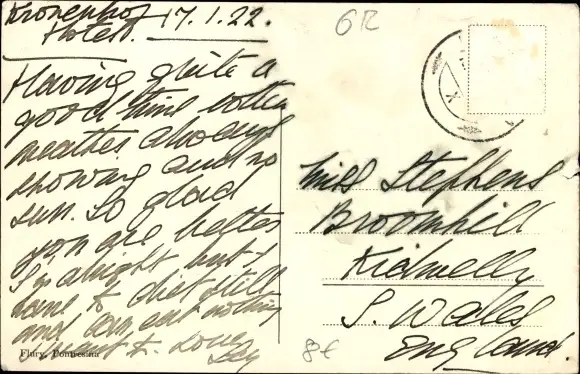 Kronenhof
Hotel. 17.1.22.
Having quite a
good time rotten
weather always
snowing and no
sun. So glad
you are better
I'm alright but I
have to diet still
and can eat nothing
I want to. Love
Flury, Pontresina
6R
Miss Stephens
Broomhill
Kidwelly
S. Wales
England.
8€